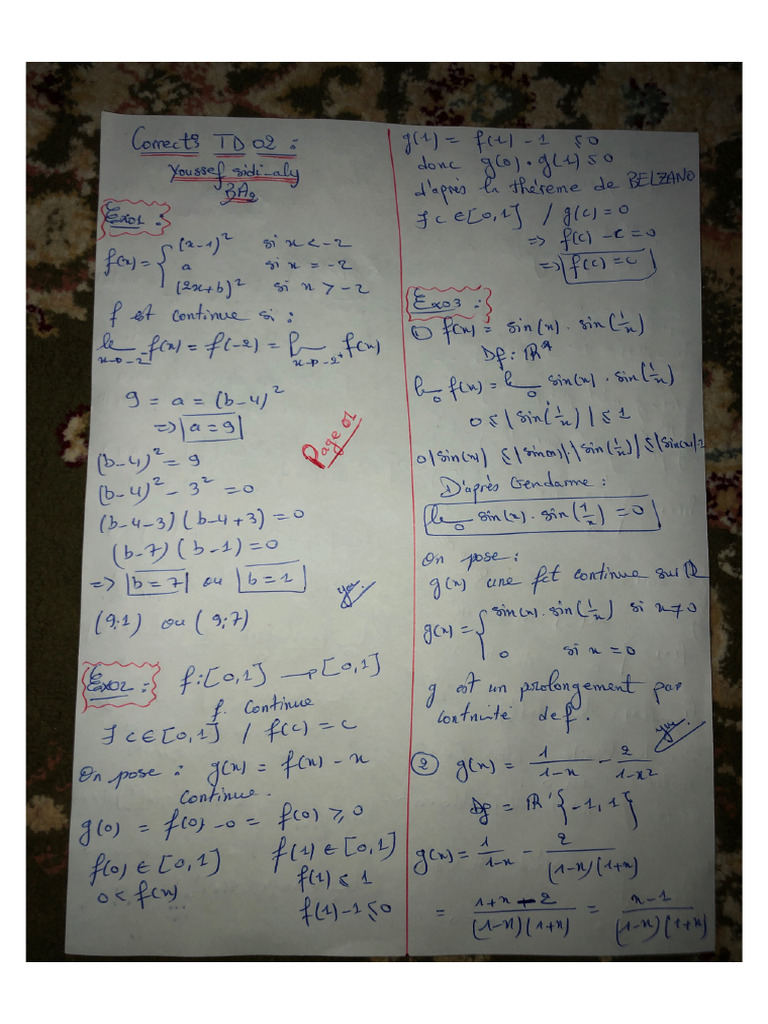 Correct° TD 02 :
Youssef sidi-aly
BA2
Exo1 :
f(x) = { (x-1)² si x < -2
a si x = -2
(2x+b)² si x > -2
f est continue si :
lim x→-2⁻ f(x) = f(-2) = lim x→-2⁺ f(x)
9 = a = (b-4)²
=> a = 9
Page 01
(b-4)² = 9
(b-4)² - 3² = 0
(b-4-3)(b-4+3) = 0
(b-7)(b-1) = 0
=> b = 7 ou b = 1
(9;1) ou (9;7)
Exo2 : f : [0,1] → [0,1]
f. Continue
∃ c ∈ [0,1] / f(c) = c
On pose : g(x) = f(x) - x
Continue.
g(0) = f(0) - 0 = f(0) ≥ 0
f(0) ∈ [0,1] f(1) ∈ [0,1]
0 < f(x) f(1) ≤ 1
f(1) - 1 ≤ 0
g(1) = f(1) - 1 ≤ 0
donc g(0) · g(1) ≤ 0
d'après la théreme de BELZANO
∃ c ∈ [0,1] / g(c) = 0
=> f(c) - c = 0
=> f(c) = c
Exo3 :
① f(x) = sin(x) · sin(1/x)
Df : ℝ*
lim 0 f(x) = lim 0 sin(x) · sin(1/x)
0 ≤ |sin(1/x)| ≤ 1
0|sin(x)| ≤ |sin(x)|·|sin(1/x)| ≤ |sin(x)|·1
D'après Gendarme :
lim 0 sin(x) · sin(1/x) = 0
On pose :
g(x) une fct continue sur ℝ
g(x) = { sin(x) · sin(1/x) si x ≠ 0
0 si x = 0
g est un prolongement par
continuité de f.
② g(x) = 1/(1-x) - 2/(1-x²)
Dg = ℝ \ {-1, 1}
g(x) = 1/(1-x) - 2/((1-x)(1+x))
= (1+x-2)/((1-x)(1+x)) = (x-1)/((1-x)(1+x))